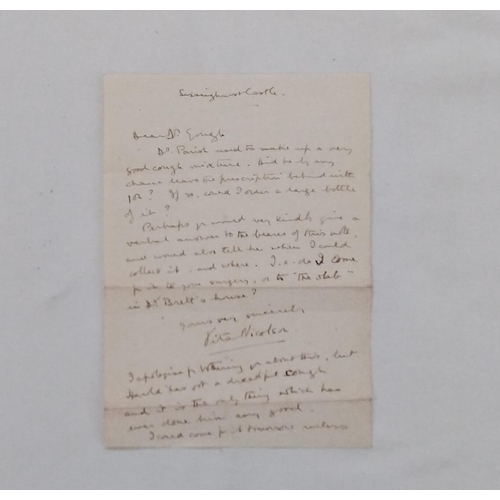 Sissinghurst Castle.
Dear Dr Gough
Dr Parish used to make up a very
good cough mixture. Did he by any
chance leave the prescription behind with
you? If so, could I order a large bottle
of it?
Perhaps you would very kindly give a
verbal answer to the bearer of this note,
and would also tell her when I could
collect it, and where. I.e. do I come
for it to your surgery, or to "the slab"
in Dr Brett's house?
Yours very sincerely
Vita Nicolson
I apologise for bothering you about this, but
Harold has got a dreadful cough
and it is the only thing which has
ever done him any good.
I could come for it tomorrow